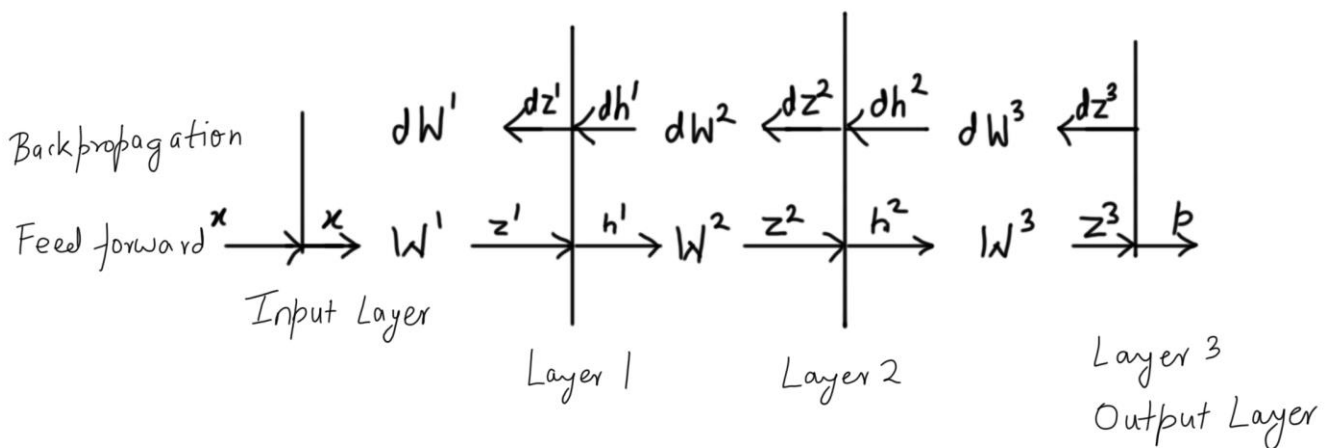 Backpropagation dW¹ dz¹ dh¹ dW² dz² dh² dW³ dz³
Feed forward x x W¹ z¹ h¹ W² z² h² W³ z³ p
Input Layer
Layer 1
Layer 2
Layer 3
Output Layer